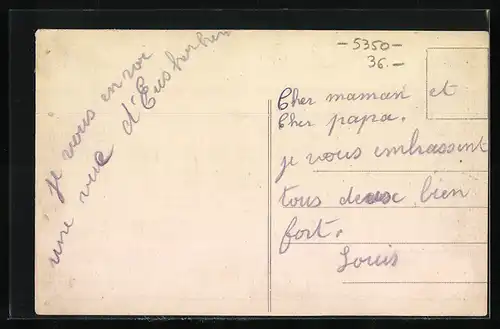 Je vous envoi
une vue d'Euskirchen
- 5350 -
36.-
Cher maman et
Cher papa.
je vous embrassent
tous deux bien
fort.
Louis